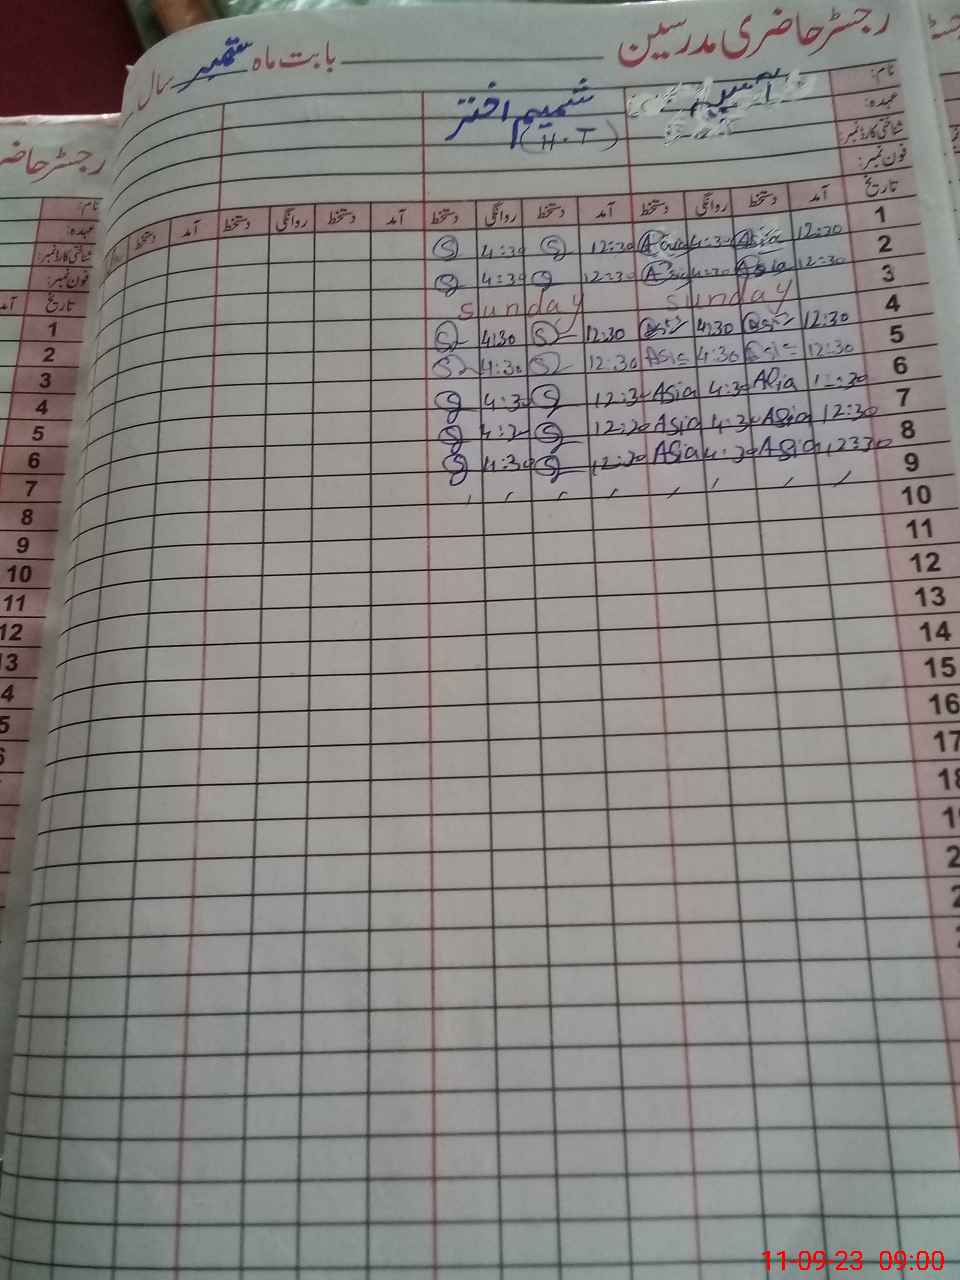 رجسٹر حاضری مدرسین بابت ماہ ستمبر سال
نام: آسیہ شمیم اختر
عہدہ: (H.T)
شناختی کارڈ نمبر:
فون نمبر:
تاریخ آمد دستخط روانگی دستخط آمد دستخط روانگی دستخط آمد دستخط روانگی دستخط آمد دستخط
1 12:30 Asia 4:30 Asia 12:30 S 4:30 S
2 12:30 Asia 4:30 Asia 12:30 S 4:30 S
3 Sunday Sunday
4 12:30 4:30 12:30 S 4:30 S
5 12:30 4:30 Asia 12:30 S 4:30 S
6 12:30 Asia 4:30 Asia 12:30 S 4:30 S
7 12:30 Asia 4:30 Asia 12:30 S 4:30 S
8 12330 Asia 4:30 Asia 12:30 S 4:30 S
9
10
11
12
13
14
15
16
17
رجسٹر حاضر
نام:
عہدہ:
شناختی کارڈ نمبر:
فون نمبر:
تاریخ آمد
1
2
3
4
5
6
7
8
9
10
11
12
11-09-23 09:00